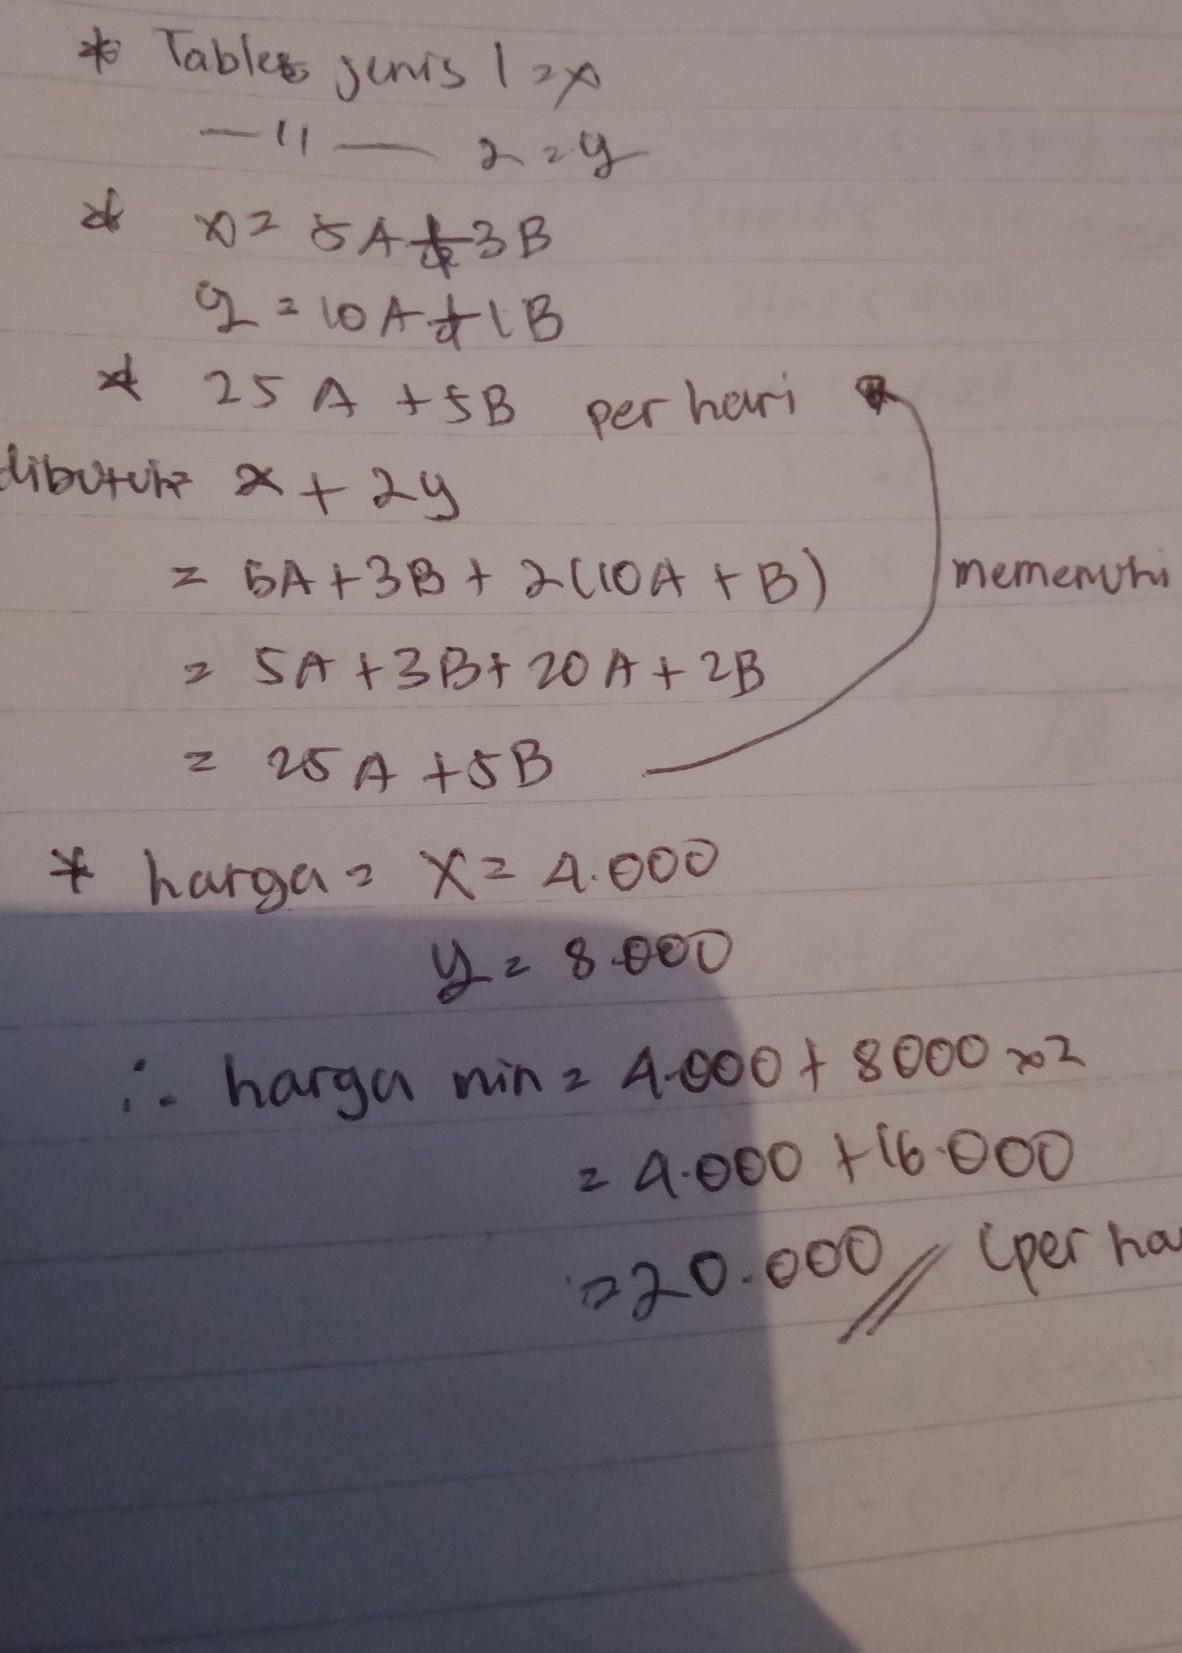 * Tablet jenis 1 = x
— 11 — 2 = y
* x = 5A + 3B
y = 10A + 1B
* 25 A + 5B per hari
dibutuh x + 2y
= 5A + 3B + 2(10A + B)
= 5A + 3B + 20A + 2B
= 25A + 5B
memenuhi
* harga = x = 4.000
y = 8.000
∴ harga min = 4.000 + 8000 x 2
= 4.000 + 16.000
= 20.000 // (per ha